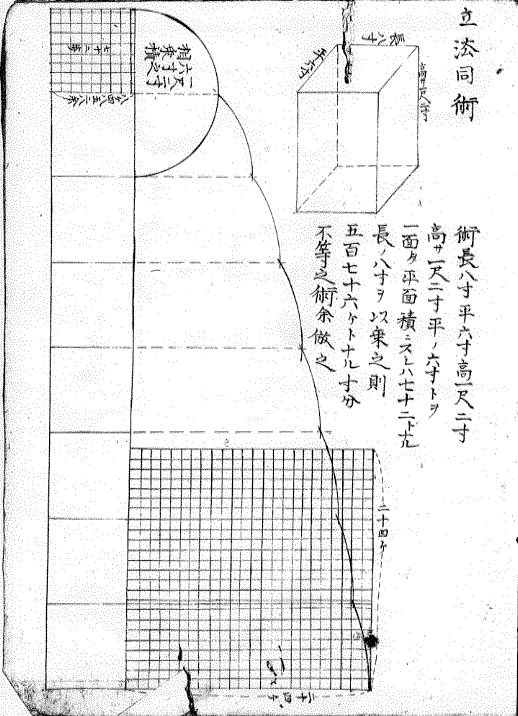 立法同術
長八寸
平六寸
高サ一尺二寸
術長八寸平六寸高一尺二寸
高サ一尺二寸平ノ六寸トヲ
一面ノ平面積ニスレハ七十二トナル
長ノ八寸ヲ以乗之則
五百七十六ケトナル寸分
不等之術余倣之
一尺二寸
六寸之
相乗積
七十二歩
八寸四八五二八余
二十四ケ
二十四ケ